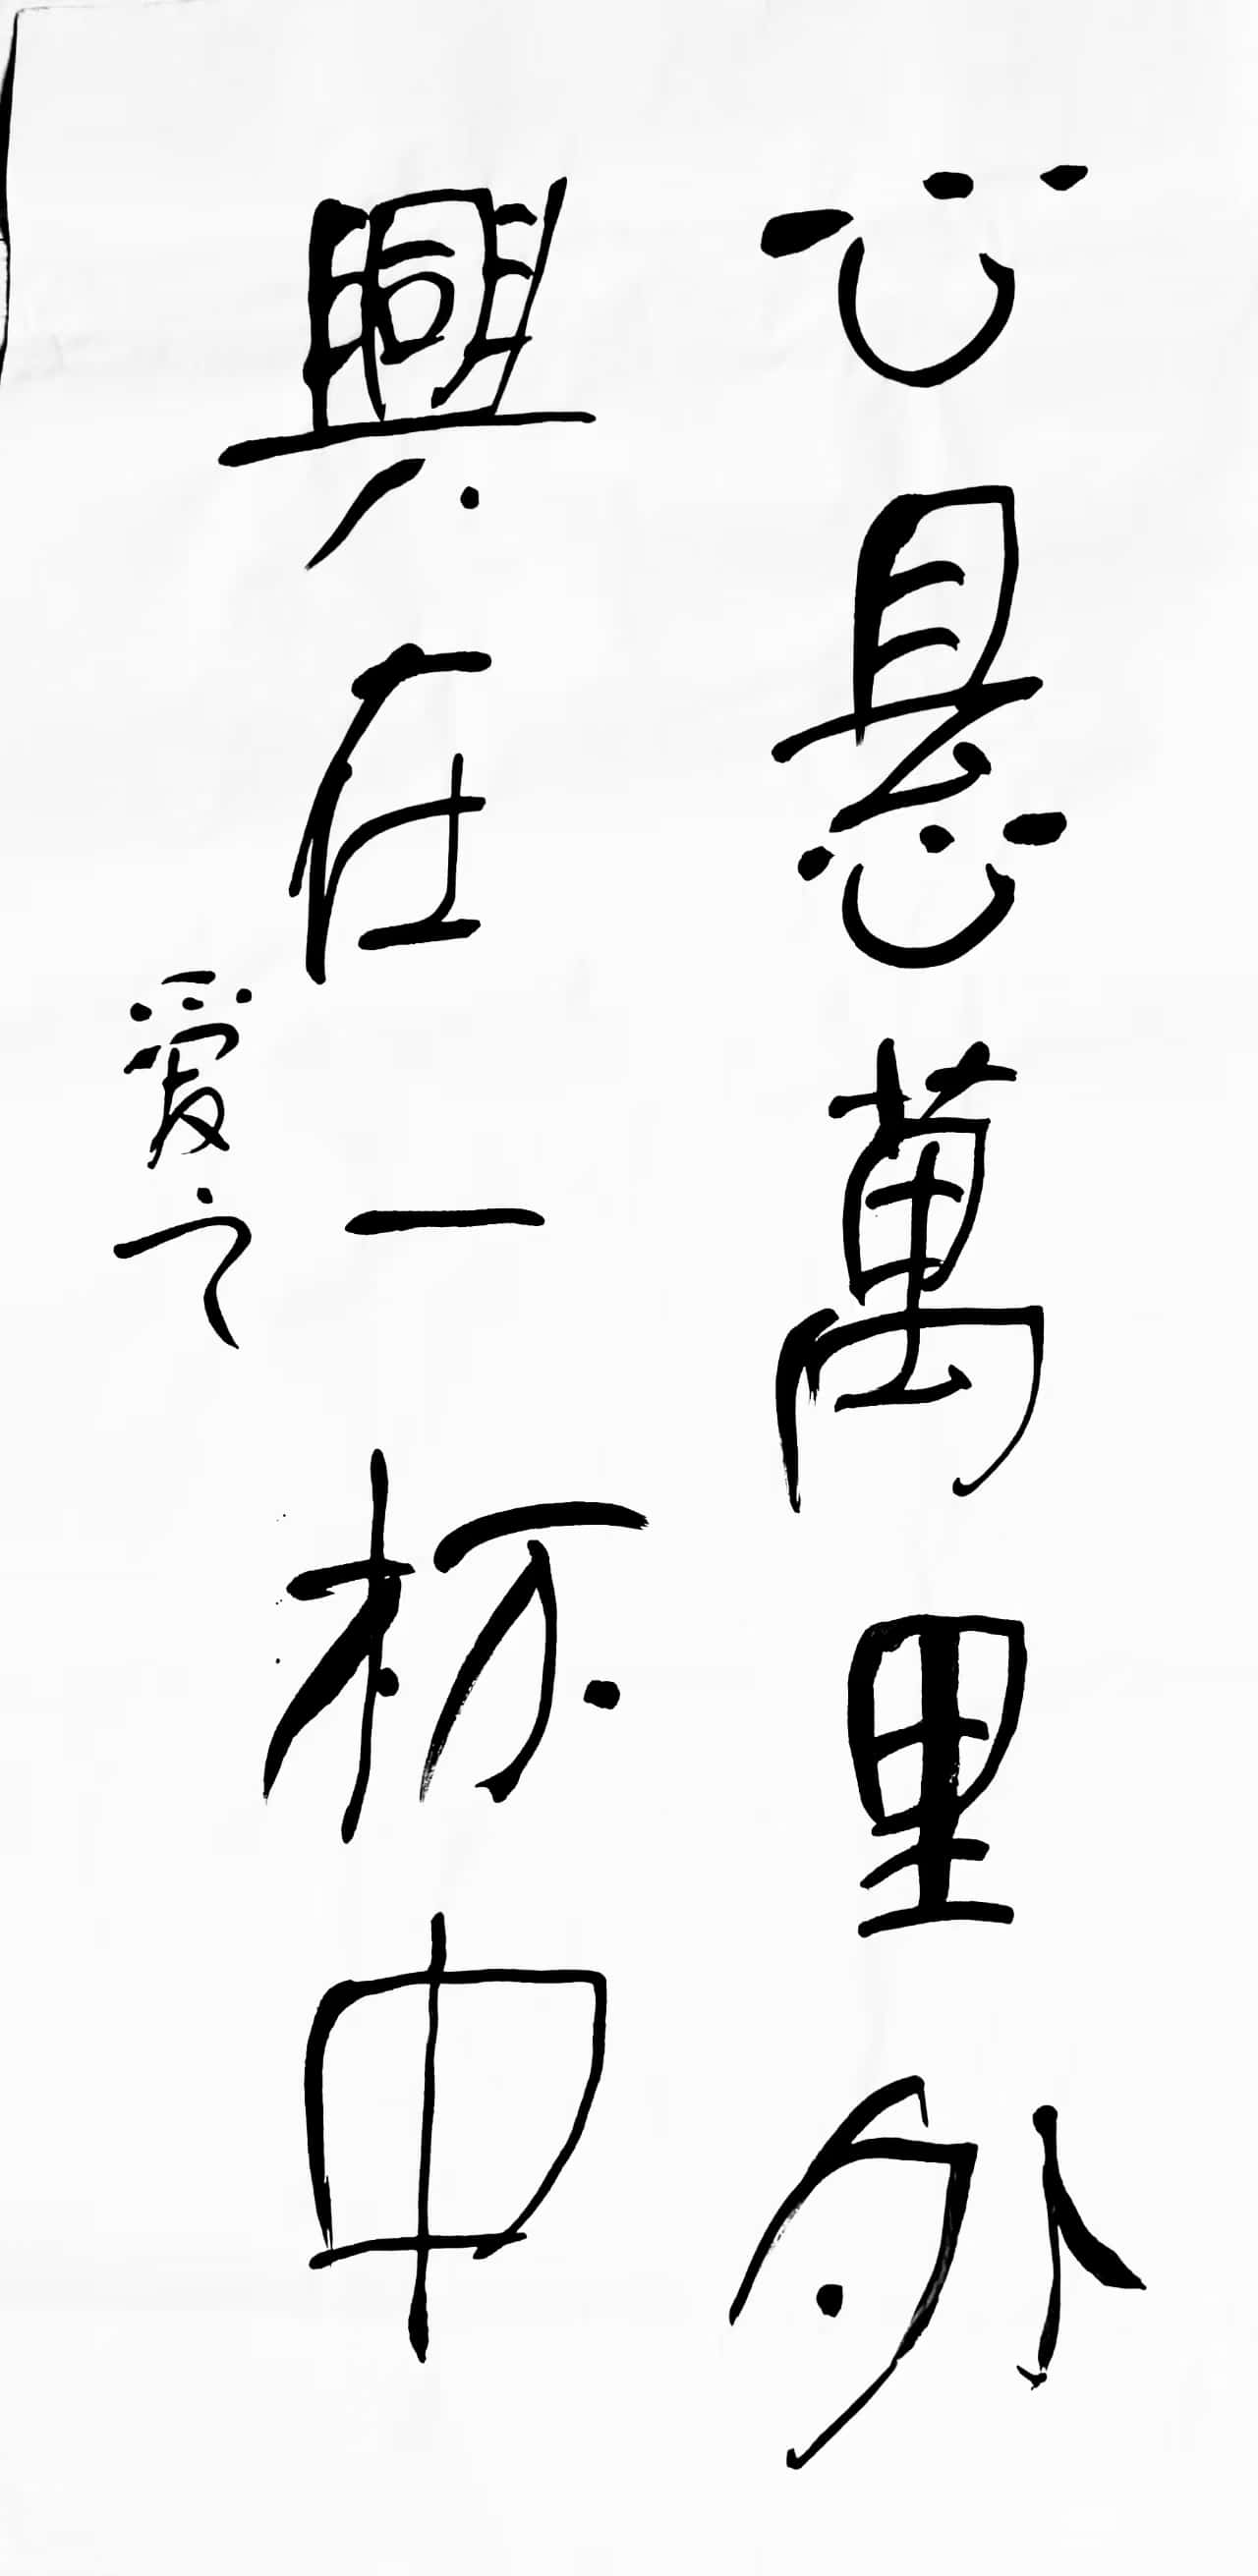 心悬萬里外
興在一杯中
爱之